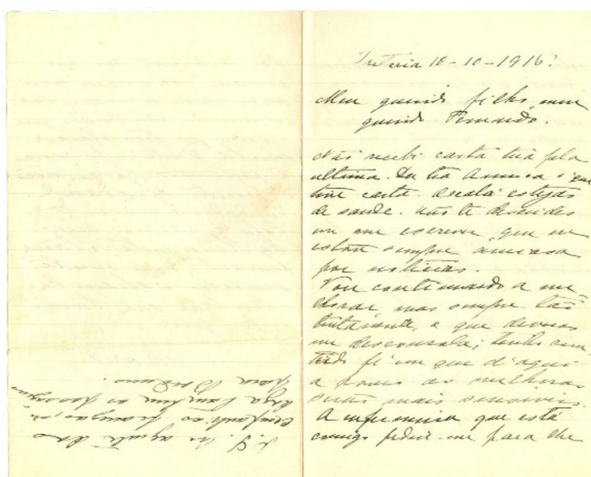 Pretoria 10-10-1916.
Meu querido filho, meu
querido Fernando.
Não recebi carta tua pela
ultima. Da tia Annica é que
tive carta. Oxalá estejas
de saude. Não te descuides
em me escrever, que eu
estou sempre anciosa
por noticias.
Vou continuando a me-
lhorar mas sempre tão
lentamente, o que deveras
me desconsola; tenho com-
tudo fé em que d'aqui
a pouco as melhoras
serão mais sensiveis.
A enfermeira que está
comigo pediu-me para lhe